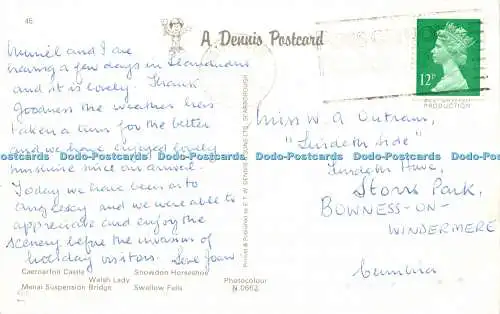 45
A Dennis Postcard
Muriel and I are
having a few days in Llandudno
and it is lovely. Thank
goodness the weather has
taken a turn for the better
and we have enjoyed lovely
sunshine since our arrival.
Today we have been on to
Anglesey and we were able to
appreciate and enjoy the
scenery before the invasion of
holiday visitors. Love Joan
Caernarfon Castle Snowdon Horseshoe Photocolour
Welsh Lady N.0662
Menai Suspension Bridge Swallow Falls
Printed & Published by E.T.W. DENNIS & SONS LTD., SCARBOROUGH
12P
PRODUCTION
Miss W A Outram,
"Lindeth Side"
Lindeth Drive,
Storrs Park,
BOWNESS-ON-
WINDERMERE
Cumbria
Postcards Dodo-Postcards Dodo-Postcards Dodo-Postcards Dodo-Postcards Dodo-Postcards Dodo-Postcards